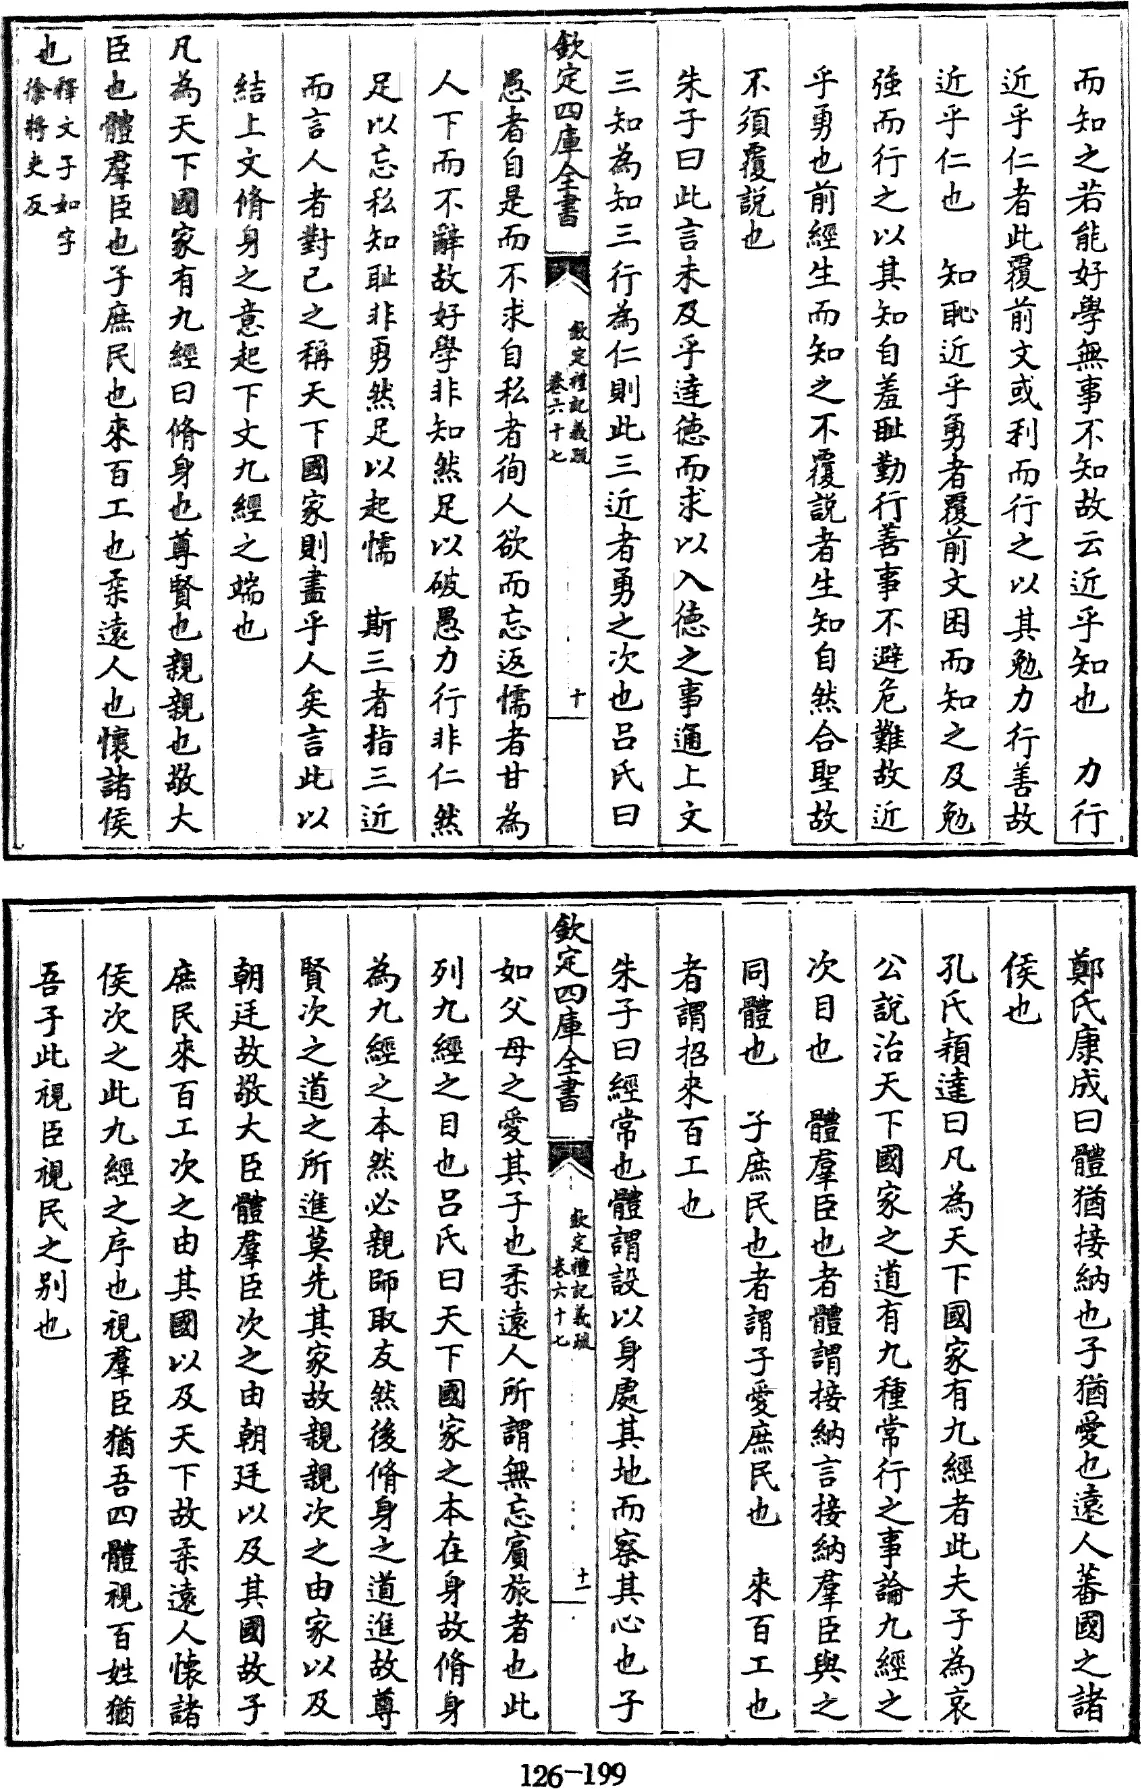 而知之若能好學無事不知故云近乎知也　力行
近乎仁者此覆前文或利而行之以其勉力行善故
近乎仁也　知恥近乎勇者覆前文困而知之及勉
強而行之以其知自羞耻勤行善事不避危難故近
乎勇也前經生而知之不覆説者生知自然合聖故
不須覆説也
朱子曰此言未及乎達徳而求以入徳之事通上文
三知為知三行為仁則此三近者勇之次也吕氏曰
欽定四庫全書
欽定禮記義疏
卷六十七
十
愚者自是而不求自私者徇人欲而忘返懦者甘為
人下而不辭故好學非知然足以破愚力行非仁然
足以忘私知耻非勇然足以起懦　斯三者指三近
而言人者對己之稱天下國家則盡乎人矣言此以
結上文脩身之意起下文九經之端也
凡為天下國家有九經曰脩身也尊賢也親親也敬大
臣也體羣臣也子庶民也來百工也柔遠人也懷諸侯
也釋文子如字
徐將吏反
鄭氏康成曰體猶接納也子猶愛也遠人蕃國之諸
侯也
孔氏穎達曰凡為天下國家有九經者此夫子為哀
公説治天下國家之道有九種常行之事論九經之
次目也　體羣臣也者體謂接納言接納羣臣與之
同體也　子庶民也者謂子愛庶民也　來百工也
者謂招來百工也
朱子曰經常也體謂設以身處其地而察其心也子
欽定四庫全書
欽定禮記義疏
卷六十七
十一
如父母之愛其子也柔遠人所謂無忘賓旅者也此
列九經之目也吕氏曰天下國家之本在身故脩身
為九經之本然必親師取友然後脩身之道進故尊
賢次之道之所進莫先其家故親親次之由家以及
朝廷故敬大臣體羣臣次之由朝廷以及其國故子
庶民來百工次之由其國以及天下故柔遠人懷諸
侯次之此九經之序也視羣臣猶吾四體視百姓猶
吾子此視臣視民之别也
126-199